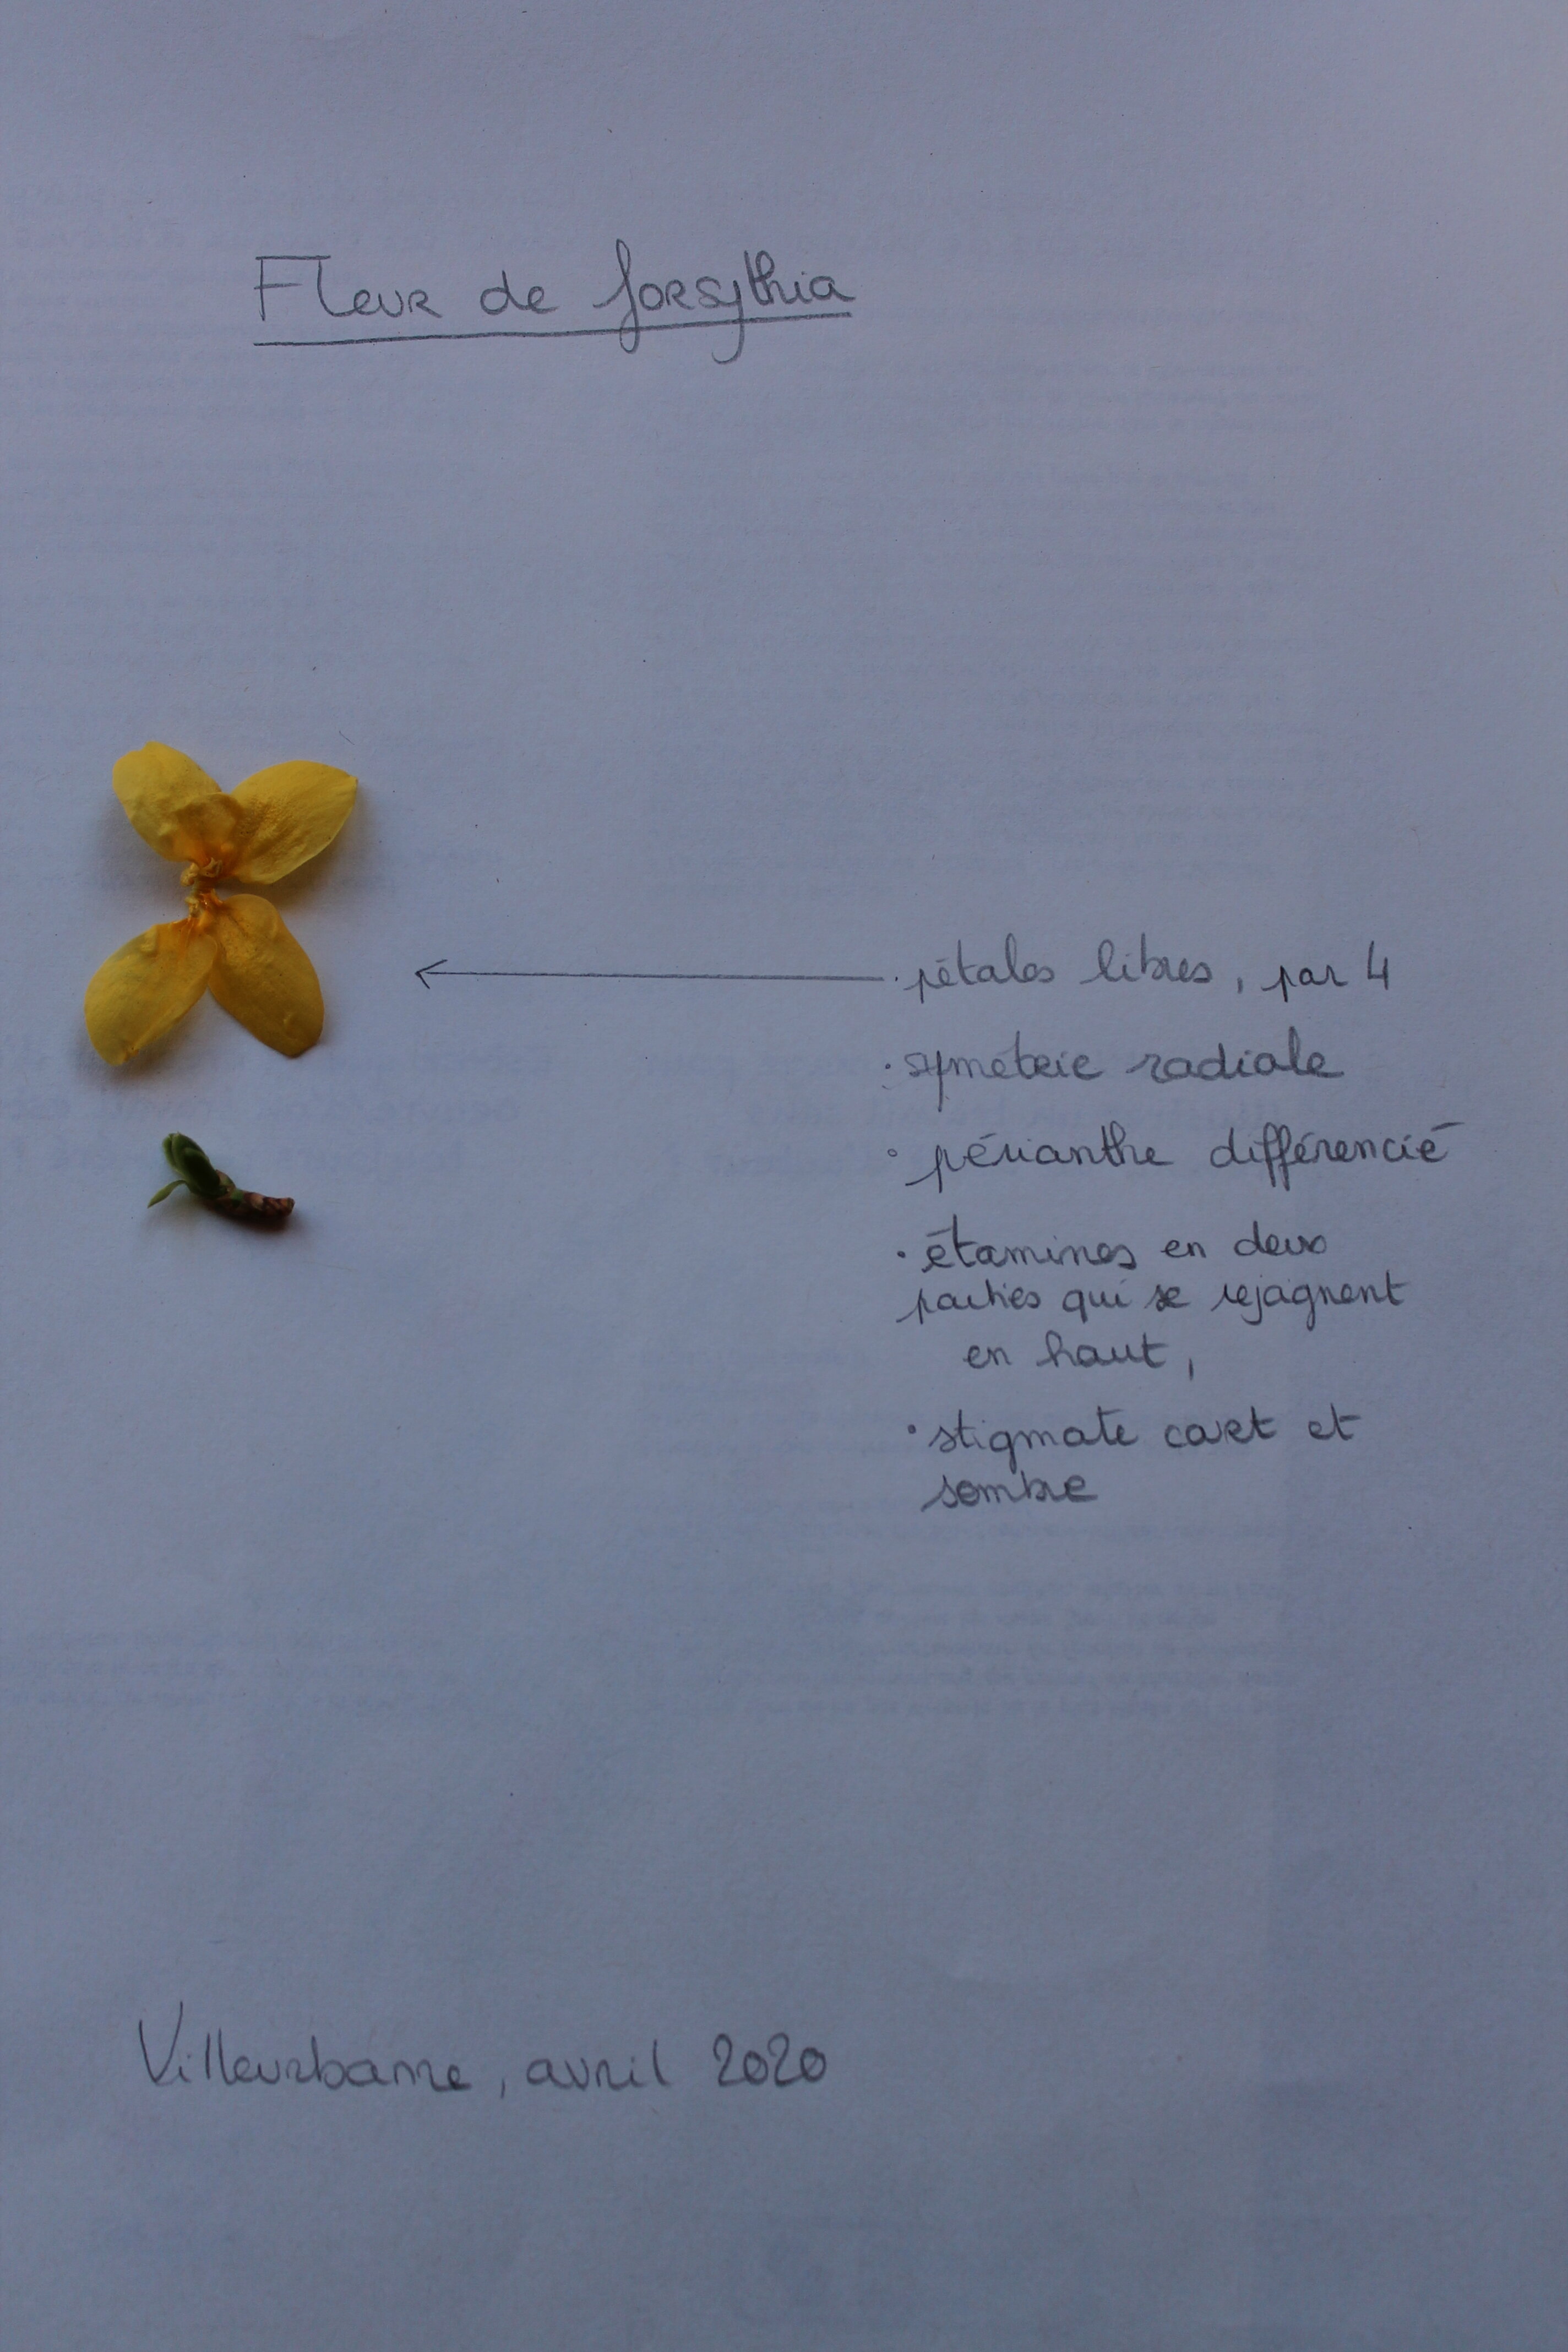 Fleur de forsythia
· pétales libres, par 4
· symétrie radiale
· périanthe différencié
· étamines en deux
parties qui se rejoignent
en haut,
· stigmate court et
sombre
Villeurbanne, avril 2020